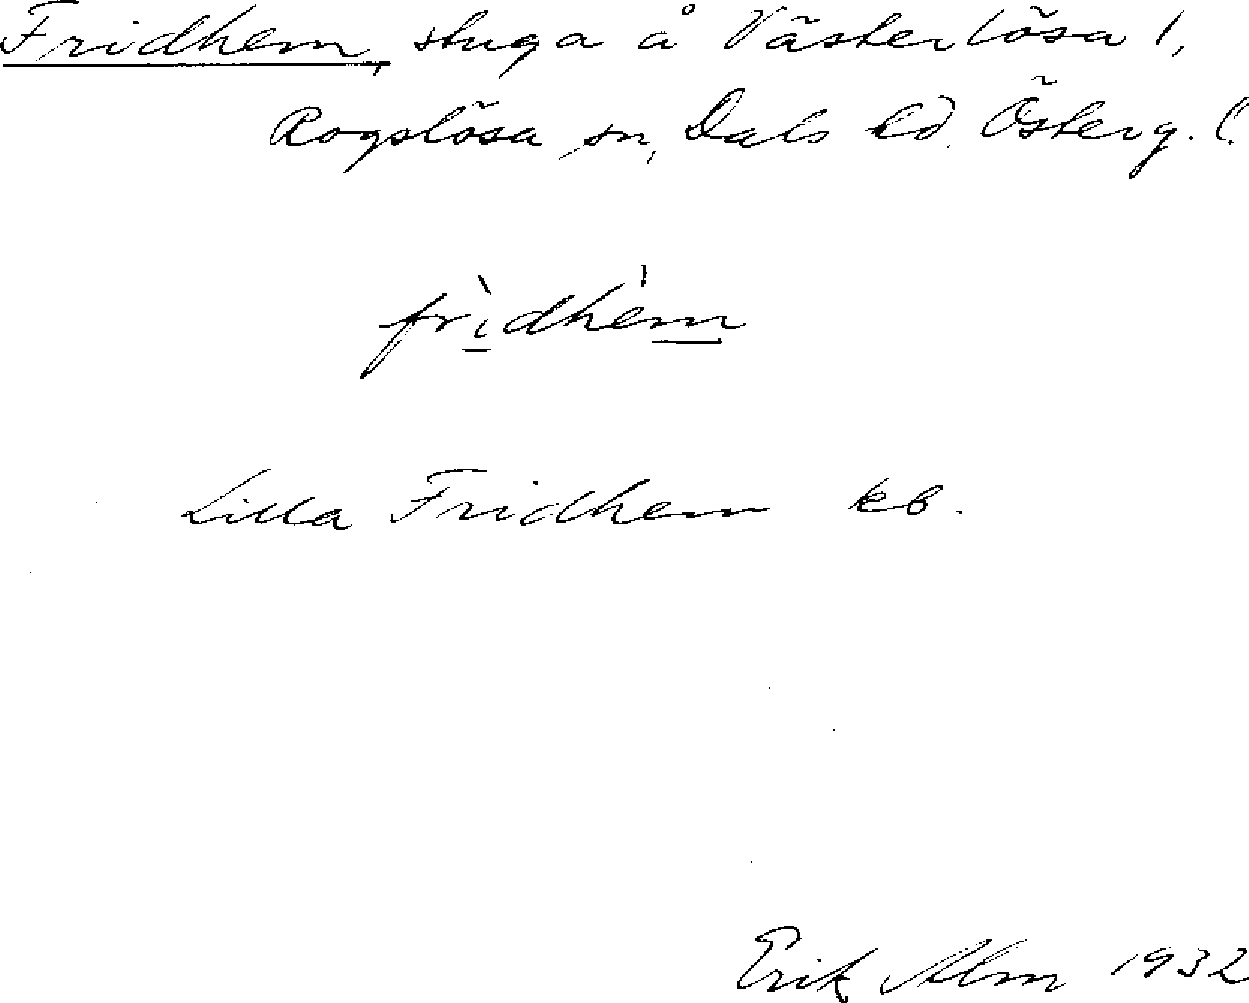 Fridhem, stuga å Västerlösa 1,
Rogslösa sn, Dals hd. Österg. l.
frìdhém
Lilla Fridhem kb.
Erik Alm 1932